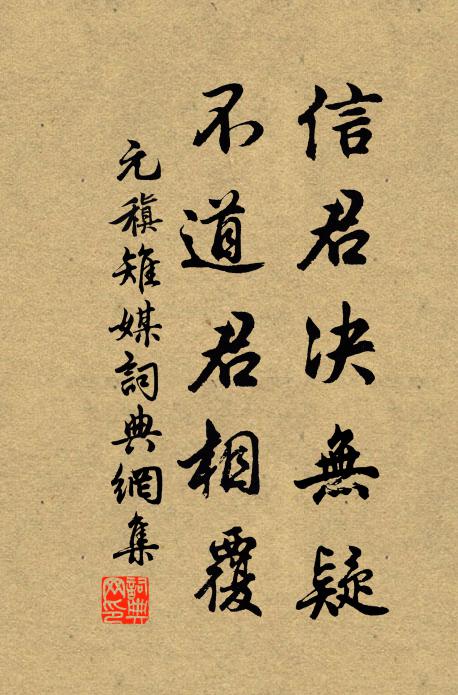 信君決無疑
不道君相覆
元稹雉媒詞典網集
詞典網印